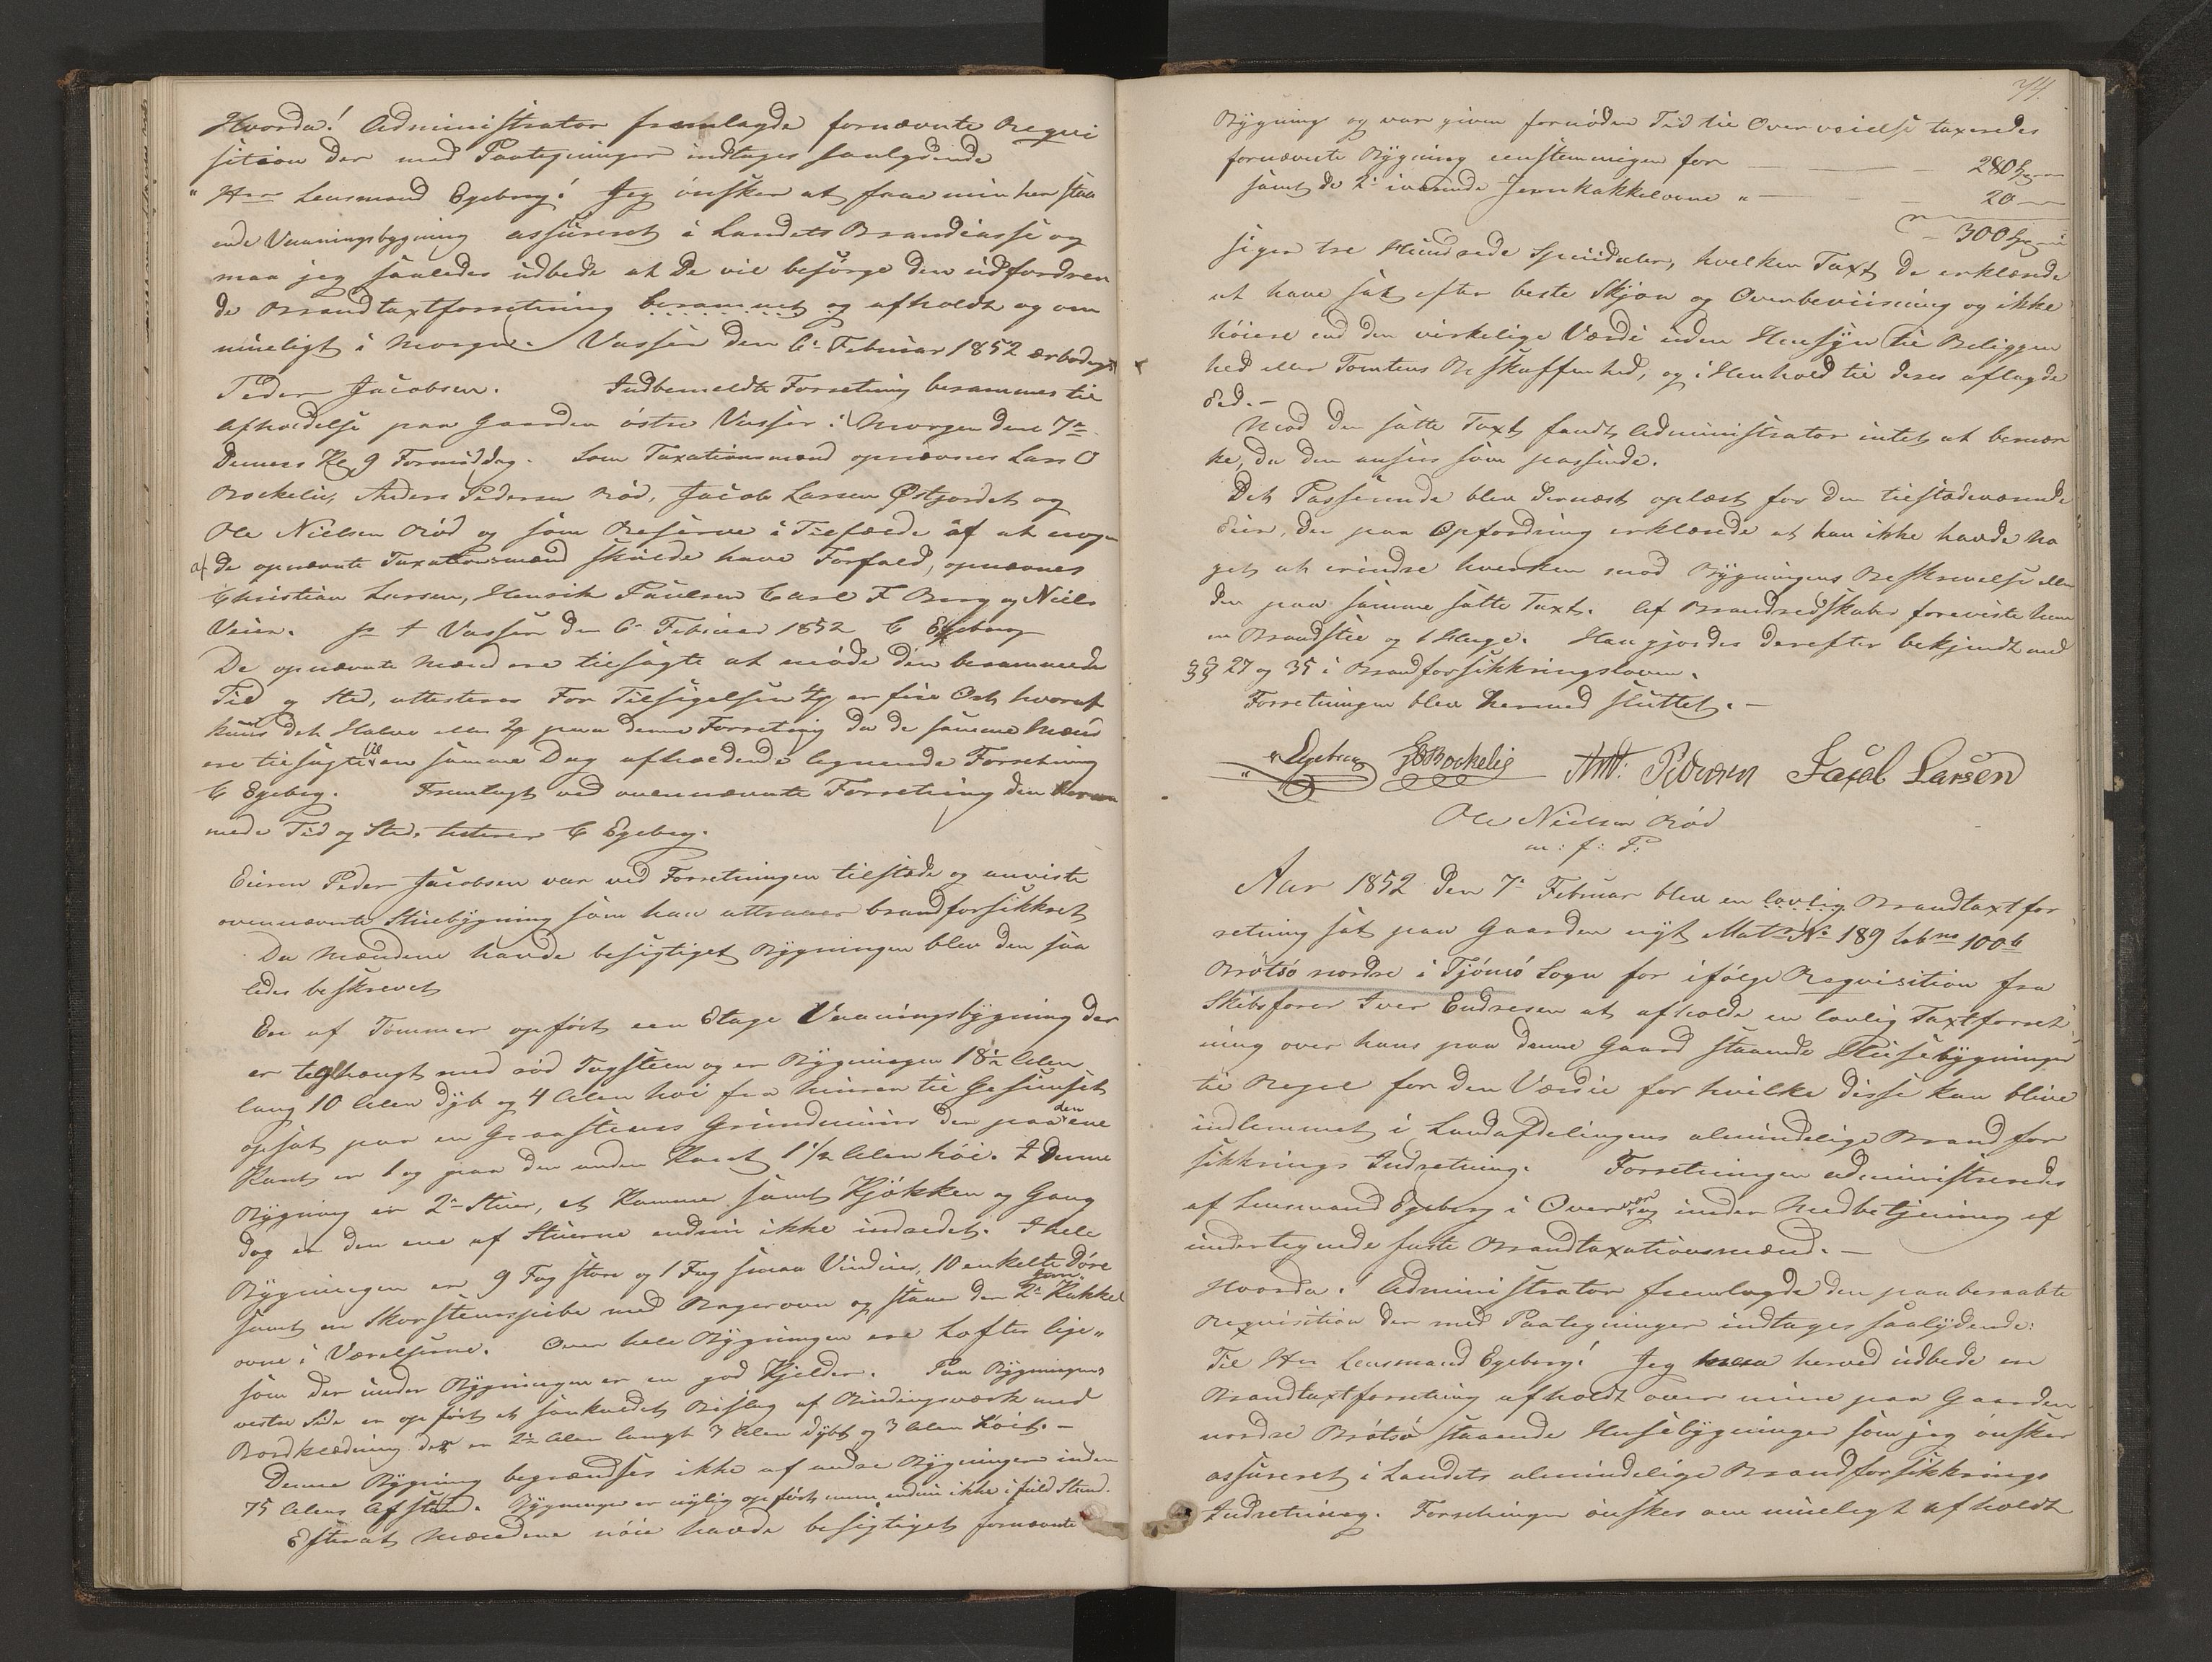 Hvorda! Administrator fremlagde fornævnte Requi
sition der med Paategninger indtages saalydende
"Herr Lensmand Egeberg! Jeg ønsker at faae min her staa
ende Vaaningsbygning assureret i Landets Brandcasse og
maa jeg saaledes udbede at De vil besørge den udfordren
de Brandtaxtforretning berammet og afholdt og om
mueligt i Morgen. Vasser den 6te Februar 1852 ærbødigst
Peder Jacobsen. Indbemeldte Forretning berammes til
Afholdelse paa Gaarden østre Vasser i Morgen den 7de
Dennes Kl 9 Formiddag. Som Taxationsmænd opnævnes Lars O
Rockelie, Anders Pedersen Rød, Jacob Larsen Østjordet og
Ole Nielsen Rød og som Reserve i Tilfælde af at nogen
af de opnævnte Taxationsmænd skulde have Forfald, opnævnes
Christian Larsen, Henrik Paulsen Carl F Berg og Niels
Veien. p t Vasser den 6te Februar 1852 C Egeberg
De opnævnte Mænd ere tilsagte at møde den berammede
Tid og Sted, attesteres For Tilsigelsen 4 er fire Ort hvoraf
kuns det Halve eller 2 paa denne Forretning da de samme Mænd
ere tilsagte til en samme Dag afholdende lignende Forretning
C Egeberg. Fremlagt ved ovennævnte Forretning den beram
mede Tid og Sted, testerer C Egeberg.
Eieren Peder Jacobsen var ved Forretningen tilstæde og anviste
ovennævnte Stuebygning som han attraaer brandforsikkret
Da Mændene havde besigtiget Bygningen blev den saa
ledes beskrevet
En af Tømmer opført een Etage Vaaningsbygning der
er teglhængt med rød Tagsteen og er Bygningen 18½ Alen
lang 10 Alen dyb og 4 Alen høi fra Muren til Gesimset
opsat paa en Graasteens Grundmuur der paa den ene
Kant er 1 og paa den anden Kant 1½ Alen høi. I Denne
Bygning er 2de Stuer, et Kammer samt Kjøkken og Gang
dog er den ene af Stuerne endnu ikke indredet. I hele
Bygningen er 9 Fag store og 1 Fag smaa Vinduer, 10 enkelte Døre
samt en Skorsteenspibe med Bagerovn og staar der 2de Jern Kakkel
ovne i Værelserne. Over hele Bygningen ere Lofter lige"
som der under Bygningen er en god Kjelder. Paa Bygningens
vestre Side er opført et saakaldet Bislag af Bindingsværk med
Bordklædning der er 2½ Alen langt 3 Alen dybt og 3 Alen høit.-
Denne Bygning begrændses ikke af andre Bygninger inden
75 Alens Afstand. Bygningen er nylig opført men endnu ikke i fuld Stand.
Efterat Mændene nøie havde besigtiget fornævnte
74
Bygning og var given fornøden Tid til Overveielse taxeredes
fornævnte Bygning eenstemmigen for 280
samt de 2de iværende Jernkakkelovne " 20
300
siger tre Hundrede Speciedaler, hvilken Taxt de erklærede
at have sat efter beste Skjøn og Overbeviisning og ikke
høiere end den virkelige Værdi uden Hensyn til Beliggen
hed eller Tomtens Beskaffenhed, og i Henhold til deres aflagde
Eed.-
Mod den satte Taxt fandt Administrator intet at bemær
ke, da den ansees som passende.
Det Passerende blev dernæst oplæst for den tilstedeværende
Eier, der paa Opfordring erklærede at han ikke havde no
get at erindre hverken mod Bygningens Beskrivelse eller
den paa samme satte Taxt. Af Brandredskaber foreviste han
en Brandstie og 1 Hage. Han gjordes derefter bekjendt med
§§ 27 og 35 i Brandforsikkringsloven.
Forretningen blev hermed sluttet.-
Egeberg Rockelie And: Pedersen Jacob Larsen
Ole Nielsen Rød
m: f: P:
Aar 1852 den 7de Februar blev en lovlig Brandtaxtfor
retning sat paa Gaarden nyt Matr No 189 Lobno 100b
Brøtsø nordre i Tjømø Sogn for ifølge Requisition fra
Skibsfører Iver Endresen at afholde en lovlig Taxtforret
ning over hans paa denne Gaard staaende Huusebygninger
til Regel for den Værdie for hvilke disse kan blive
indlemmet i Landafdelingens almindelige Brandfor
sikkrings Indretning. Forretningen administreredes
af Lensmand Egeberg i Overvær og under Medbetjening af
undertegnede faste Brandtaxationsmænd.-
Hvorda! Administrator fremlagde den paaberaabte
Requisition der med Paategninger indtages saalydende:
Til Herr Lensmand Egeberg! Jeg maa herved udbede en
Brandtaxtforretning afholdt over mine paa Gaarden
nordre Brøtsø staaende Husebygninger som jeg ønsker
assureret i Landets almindelige Brandforsikkrings
Indretning. Forretningen ønskes om mueligt afholdt